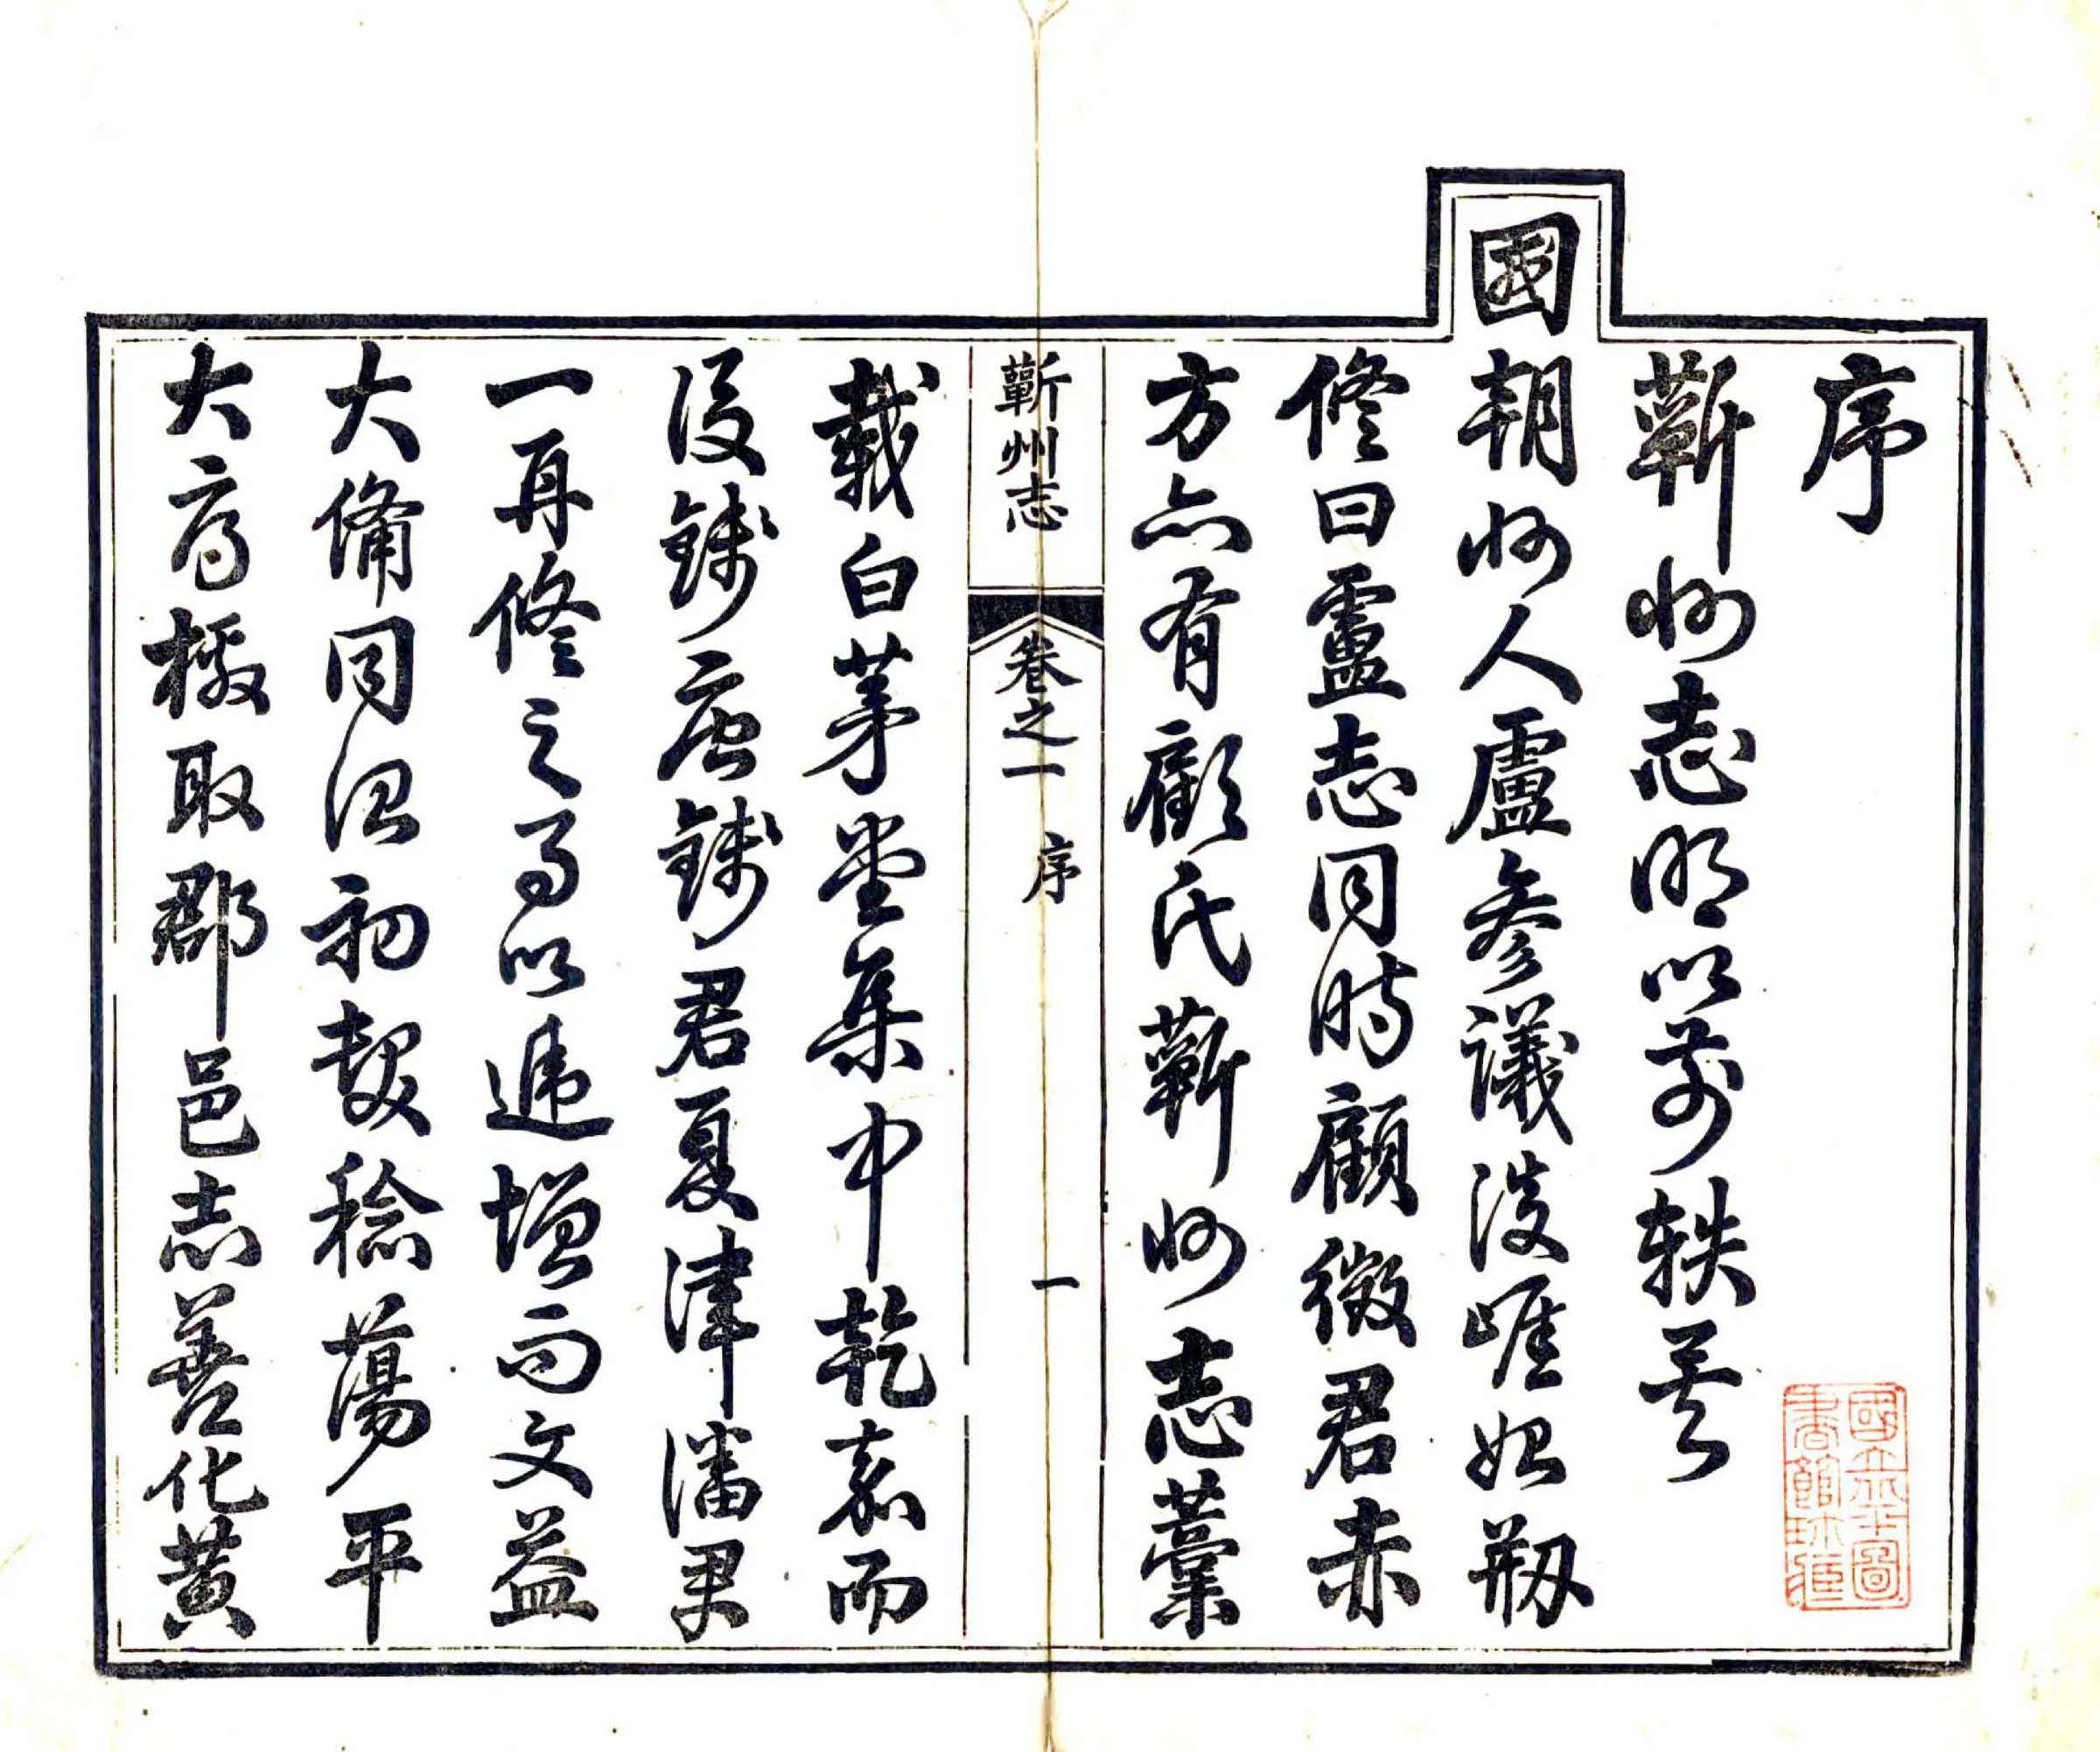 序
蘄州志明以前軼矣
國朝州人盧參議浚崖始剏
修曰盧志同時顧徵君赤
方亦有顧氏蘄州志藁
蘄州志 卷之一 序 一
載白茅堂集中乾嘉而
後錢唐錢君夏津潘君
一再修之事以遞增而文益
大備同治初髮稔蕩平
大府檄取郡邑志善化黃
國立北平圖
書館